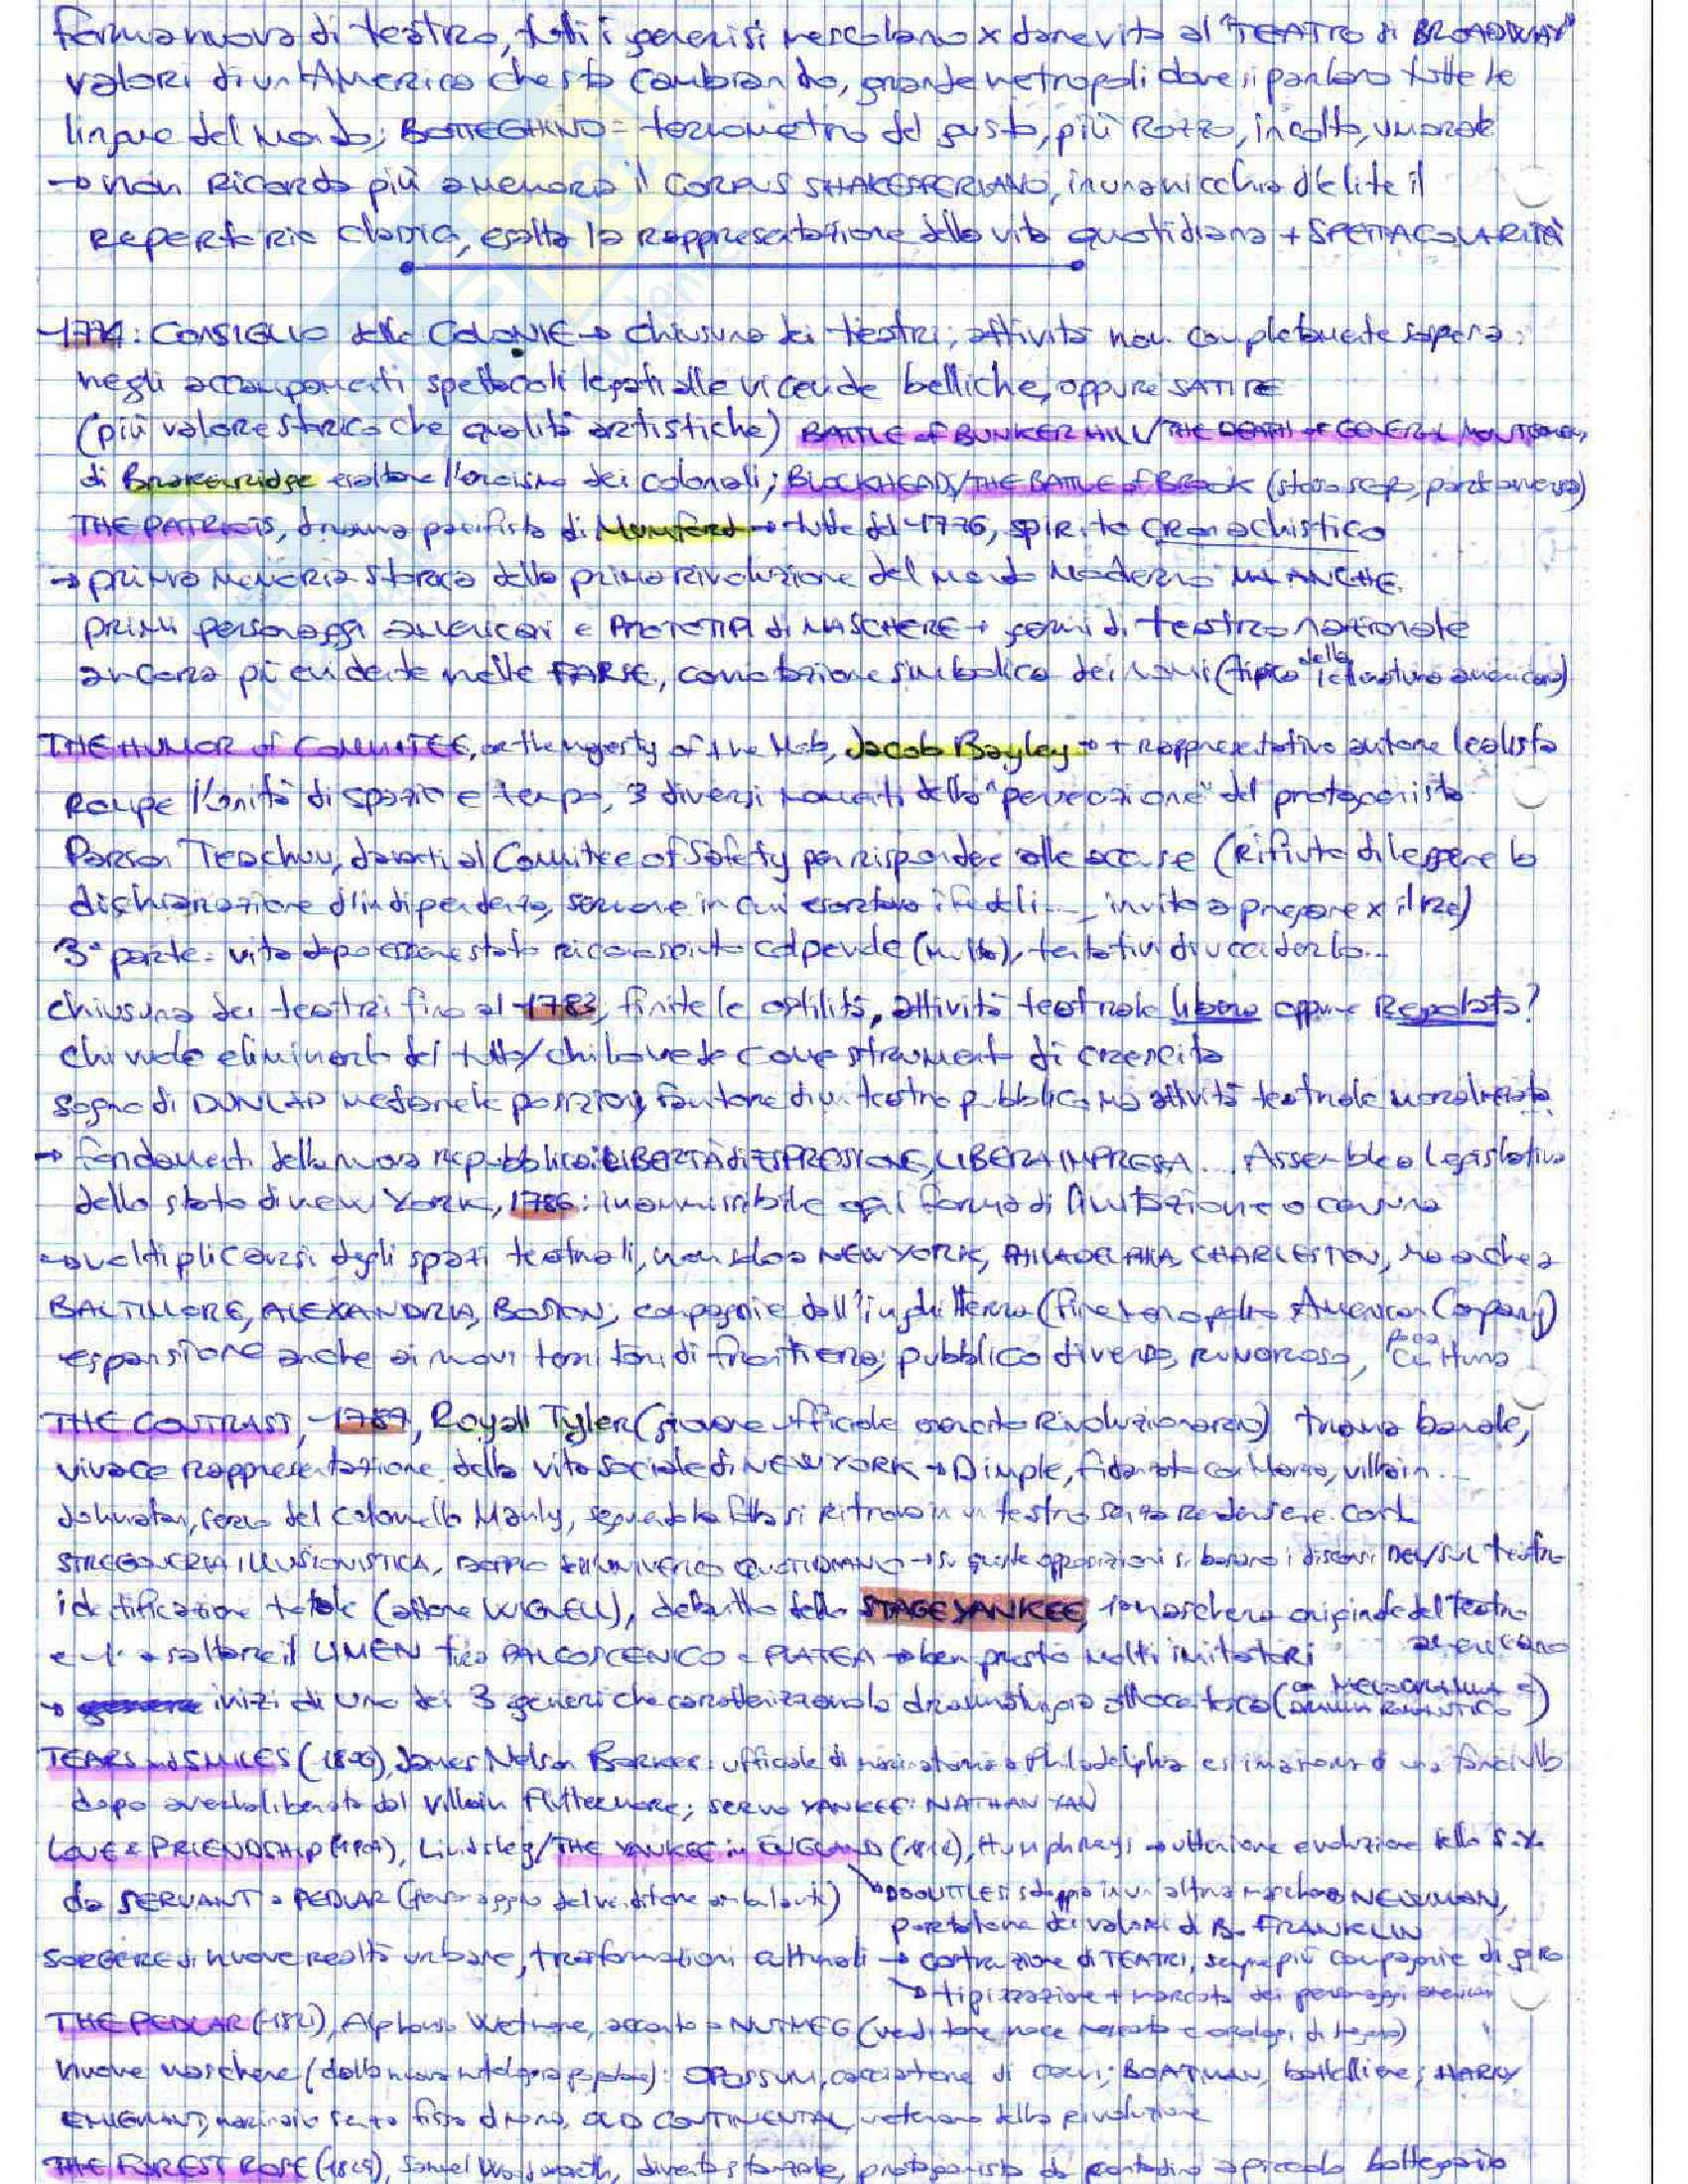 forma nuova di teatro, tutti i generi si mescolano x dare vita al "TEATRO di BROADWAY"
valori di un'America che sta cambiando, grande metropoli dove si parlano tutte le
lingue del mondo; BOTTEGHINO = termometro del gusto, più rozzo, incolto, umorale
→ non ricorda più a memoria il CORPUS SHAKESPERIANO, in una nicchia d'elite il
repertorio classico, esalta la rappresentazione della vita quotidiana + SPETTACOLARITÀ
-1774: CONSIGLIO delle COLONIE → chiusura dei teatri; attività non completamente sospesa:
negli accampamenti spettacoli legati alle vicende belliche, oppure SATIRE
(più valore storico che qualità artistiche) BATTLE of BUNKER HILL/THE DEATH of GENERAL MONTGOMERY,
di Brakenridge esaltano l'eroismo dei coloniali; BLOCKHEADS/THE BATTLE of BROOK (stesso scopo, parte avversa)
THE PATRIOTS, dramma pacifista di Mumford → tutte del 1776, spirito cronachistico
→ prima memoria storica della prima rivoluzione del mondo moderno MA ANCHE
primi personaggi americani e PROTOTIPI di MASCHERE → germi di teatro nazionale
ancora più evidente nelle FARSE, connotazione simbolica dei nomi (tipico della letteratura americana)
THE HUMOR of COMMITEE, or the Majesty of the Mob, Jacob Bayley → + rappresentativo autore lealista
Rompe l'unità di spazio e tempo, 3 diversi momenti della "persecuzione" del protagonista
Parson Teachum, davanti al Comitee of Safety per rispondere alle accuse (rifiuto di leggere la
dichiarazione d'indipendenza, sermone in cui esortava i fedeli..., invito a pregare x il re)
3ª parte: vita dopo essere stato riconosciuto colpevole (multa), tentativi di ucciderlo...
chiusura dei teatri fino al 1783, finite le ostilità, attività teatrale libera oppure Regolata?
chi vuole eliminarla del tutto/chi la vede come strumento di crescita
sogno di DUNLAP mediare le posizioni, fautore di un teatro pubblico, ma attività teatrale moralizzata
→ fondamenti della nuova repubblica: LIBERTÀ di ESPRESSIONE, LIBERA IMPRESA... Assemblea legislativa
dello stato di new York, 1786: inammissibile ogni forma di limitazione o censura
→ moltiplicarsi degli spazi teatrali, non solo a NEW YORK, PHILADELPHIA, CHARLESTON, ma anche a
BALTIMORE, ALEXANDRIA, BOSTON; compagnie dall'inghilterra (fine monopolio American Company)
espansione anche ai nuovi territori di frontiera; pubblico diverso, rumoroso, poca cultura
THE CONTRAST, -1787, Royall Tyler (giovane ufficiale esercito rivoluzionario) trama banale,
vivace rappresentazione della vita sociale di NEW YORK → Dimple, fidanzato con Maria, villain...
Johnatan, servo del colonnello Manly, seguendo la folla si ritrova in un teatro senza rendersene conto
STREGONERIA ILLUSIONISTICA, DOPPIO DELL'UNIVERSO QUOTIDIANO → su queste opposizioni si basano i discorsi DEL/SUL teatro
identificazione totale (attore WIGNELL), debutto dello STAGE YANKEE, 1ª maschera originale del teatro
americano
e 1° a saltare il LIMEN tra PALCOSCENICO e PLATEA → ben presto molti imitatori
→ inizi di uno dei 3 generi che caratterizzano la drammaturgia ottocentesca (con MELODRAMMA e DRAMMA ROMANTICO)
TEARS and SMILES (1806), James Nelson Barker: ufficiale di marina torna a Philadelphia e si innamora d una fanciulla
dopo averla liberata dal villain Fluttermore; servo YANKEE: NATHAN YAN
LOVE & FRIENDSHIP (1809), Lindsley/THE YANKEE in ENGLAND (1814), Humphreys → ulteriore evoluzione dello S.Y.
da SERVANT a PEDLAR (personaggio del venditore ambulante)
DOOLITTLE si sdoppia in un'altra maschera NEWMAN,
portatore dei valori di B. FRANKLIN
SORGERE di nuove realtà urbane, trasformazioni culturali → costruzione di TEATRI, sempre più compagnie di giro
→ tipizzazione + marcata dei personaggi americani
THE PEDLAR (-1821), Alphonso Wetmore, accanto a NUTMEG (venditore noce moscata e orologi di legno)
nuove maschere (dalla nuova mitologia popolare): OPOSSUM, cacciatore di; BOATMAN, battelliere; HARRY
EMIGRANT, marinaio senza fissa dimora, OLD CONTINENTAL, veterano della rivoluzione
THE FOREST ROSE (1825), Samuel Woodworth, diventa stanziale, protagonista da contadino a piccolo bottegaio